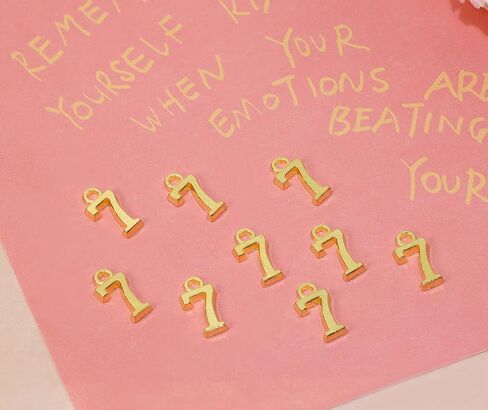 REMEM
YOURSELF KI
WHEN YOUR
EMOTIONS ARE
BEATING
YOUR
7 7 7
7 7 7
7 7 7